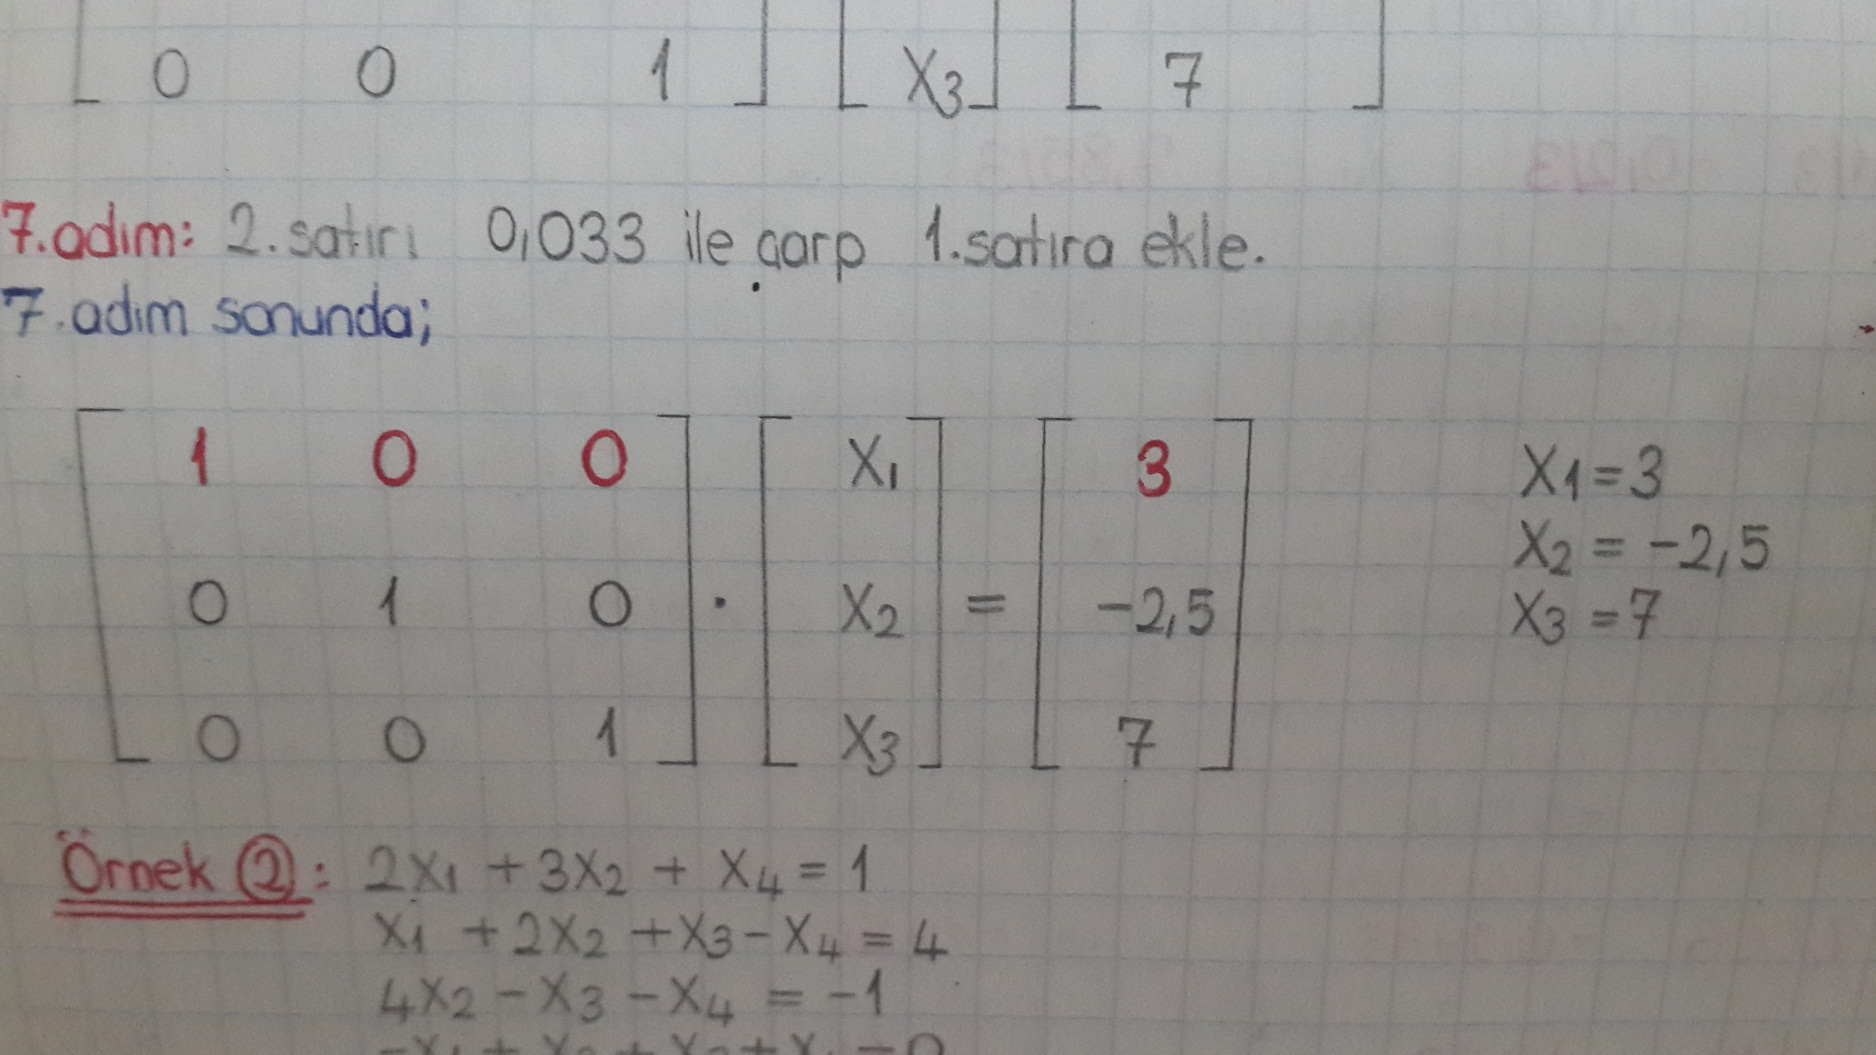 0 0 1 X3 7
7.adım: 2.satırı 0,033 ile çarp 1.satıra ekle.
7.adım sonunda;
1 0 0 X1 3 X1=3
0 1 0 . X2 = -2,5 X2 = -2,5
0 0 1 X3 7 X3 =7
Örnek 2: 2X1 + 3X2 + X4 = 1
X1 + 2X2 + X3 - X4 = 4
4X2 - X3 - X4 = -1